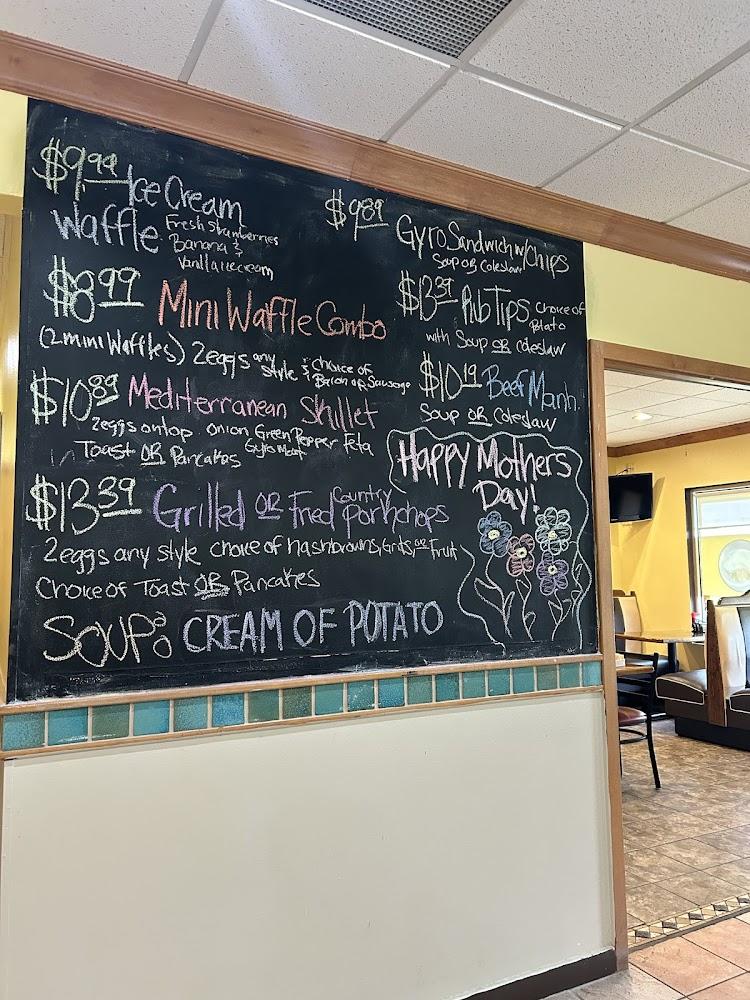 $9.99 Ice Cream
Waffle Fresh Strawberries
Banana &
Vanilla icecream
$8.99 Mini Waffle Combo
(2 mini Waffles) 2 eggs any style & choice of
Bacon or Sausage
$10.89 Mediterranean Skillet
2 eggs on top onion Green Pepper Feta
Toast OR Pancakes Gyro Meat
$13.39 Grilled OR Country Fried porkchops
2 eggs any style choice of hashbrowns, Grits, or Fruit
Choice of Toast OR Pancakes
Soup: CREAM OF POTATO
$9.89 Gyro Sandwich w/ Chips
Soup OR Coleslaw
$13.39 Rib Tips choice of
Potato
with Soup OR Coleslaw
$10.19 Beef Manh.
Soup OR Coleslaw
Happy Mothers
Day!